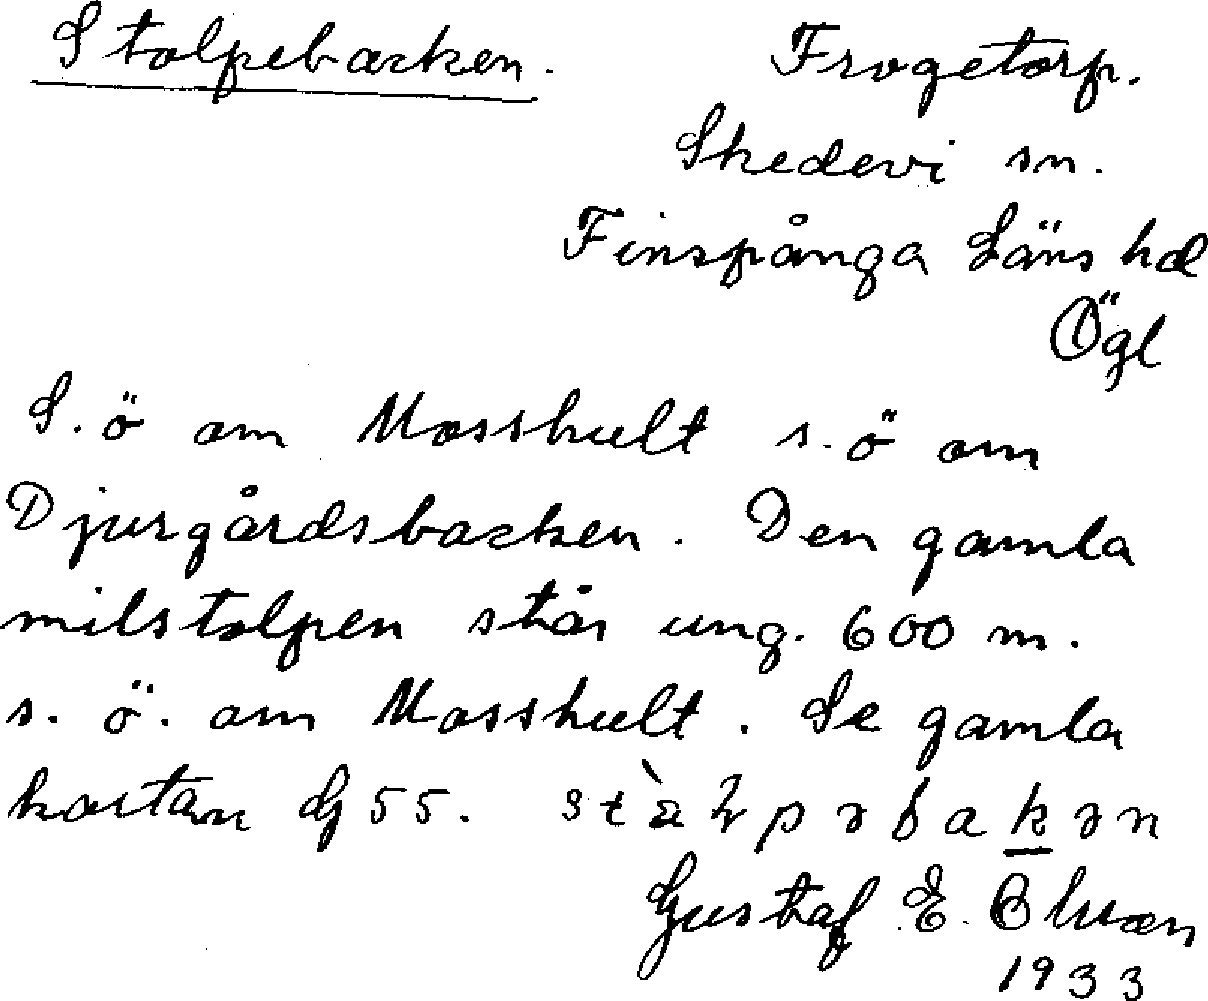 Stolpebacken. Frogetorp.
Skedevi sn.
Finspånga Läns hd
Ögl
S.ö om Mosshult s.ö om
Djurgårdsbacken. Den gamla
milstolpen står ung. 600 m.
s.ö. om Mosshult. Se gamla
kartan G 55.
Gustaf E.
1933